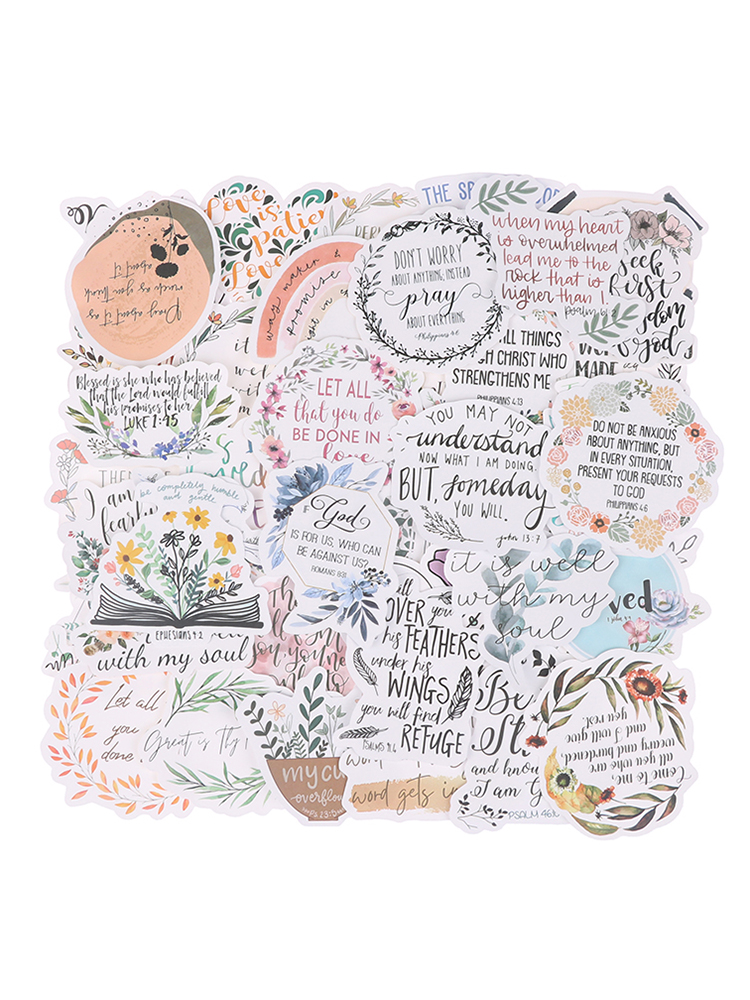 Love
is
patie
Love
THE SP
OF
when my heart
is overwhelmed
lead me to the
rock that is
higher than I.
psalm 61:2
seek
first
dom
God
DON'T WORRY
ABOUT ANYTHING; INSTEAD
pray
ABOUT EVERYTHING
-Philippians 4:6
Pray about it as
much as you think
about it.
way maker
promise
it
ALL THINGS
CHRIST WHO
STRENGTHENS ME
PHILIPPIANS 4:13
MADE
Blessed is she who has believed
that the Lord would fulfill
his promises to her.
LUKE 1:45
LET ALL
that you do
BE DONE IN
love
YOU MAY NOT
understand
NOW WHAT I AM DOING,
BUT, someday
YOU WILL.
john 13:7
DO NOT BE ANXIOUS
ABOUT ANYTHING, BUT
IN EVERY SITUATION,
PRESENT YOUR REQUESTS
TO GOD
PHILIPPIANS 4:6
I am
be completely humble
and gentle
EPHESIANS 4:2
IF
God
IS FOR US, WHO CAN
BE AGAINST US?
ROMANS 8:31
it is well
with my
soul
with my soul
OVER you
his FEATHERS
under his
WINGS
you will find
REFUGE
PSALMS 91:4
Let all
you
done
Great is Thy
my cu
overflow
Ps 23:5
word gets in
Be
St
and know
I am G
PSALM 46:10
Come to me,
all you who are
weary and burdened,
and I will give
you rest.